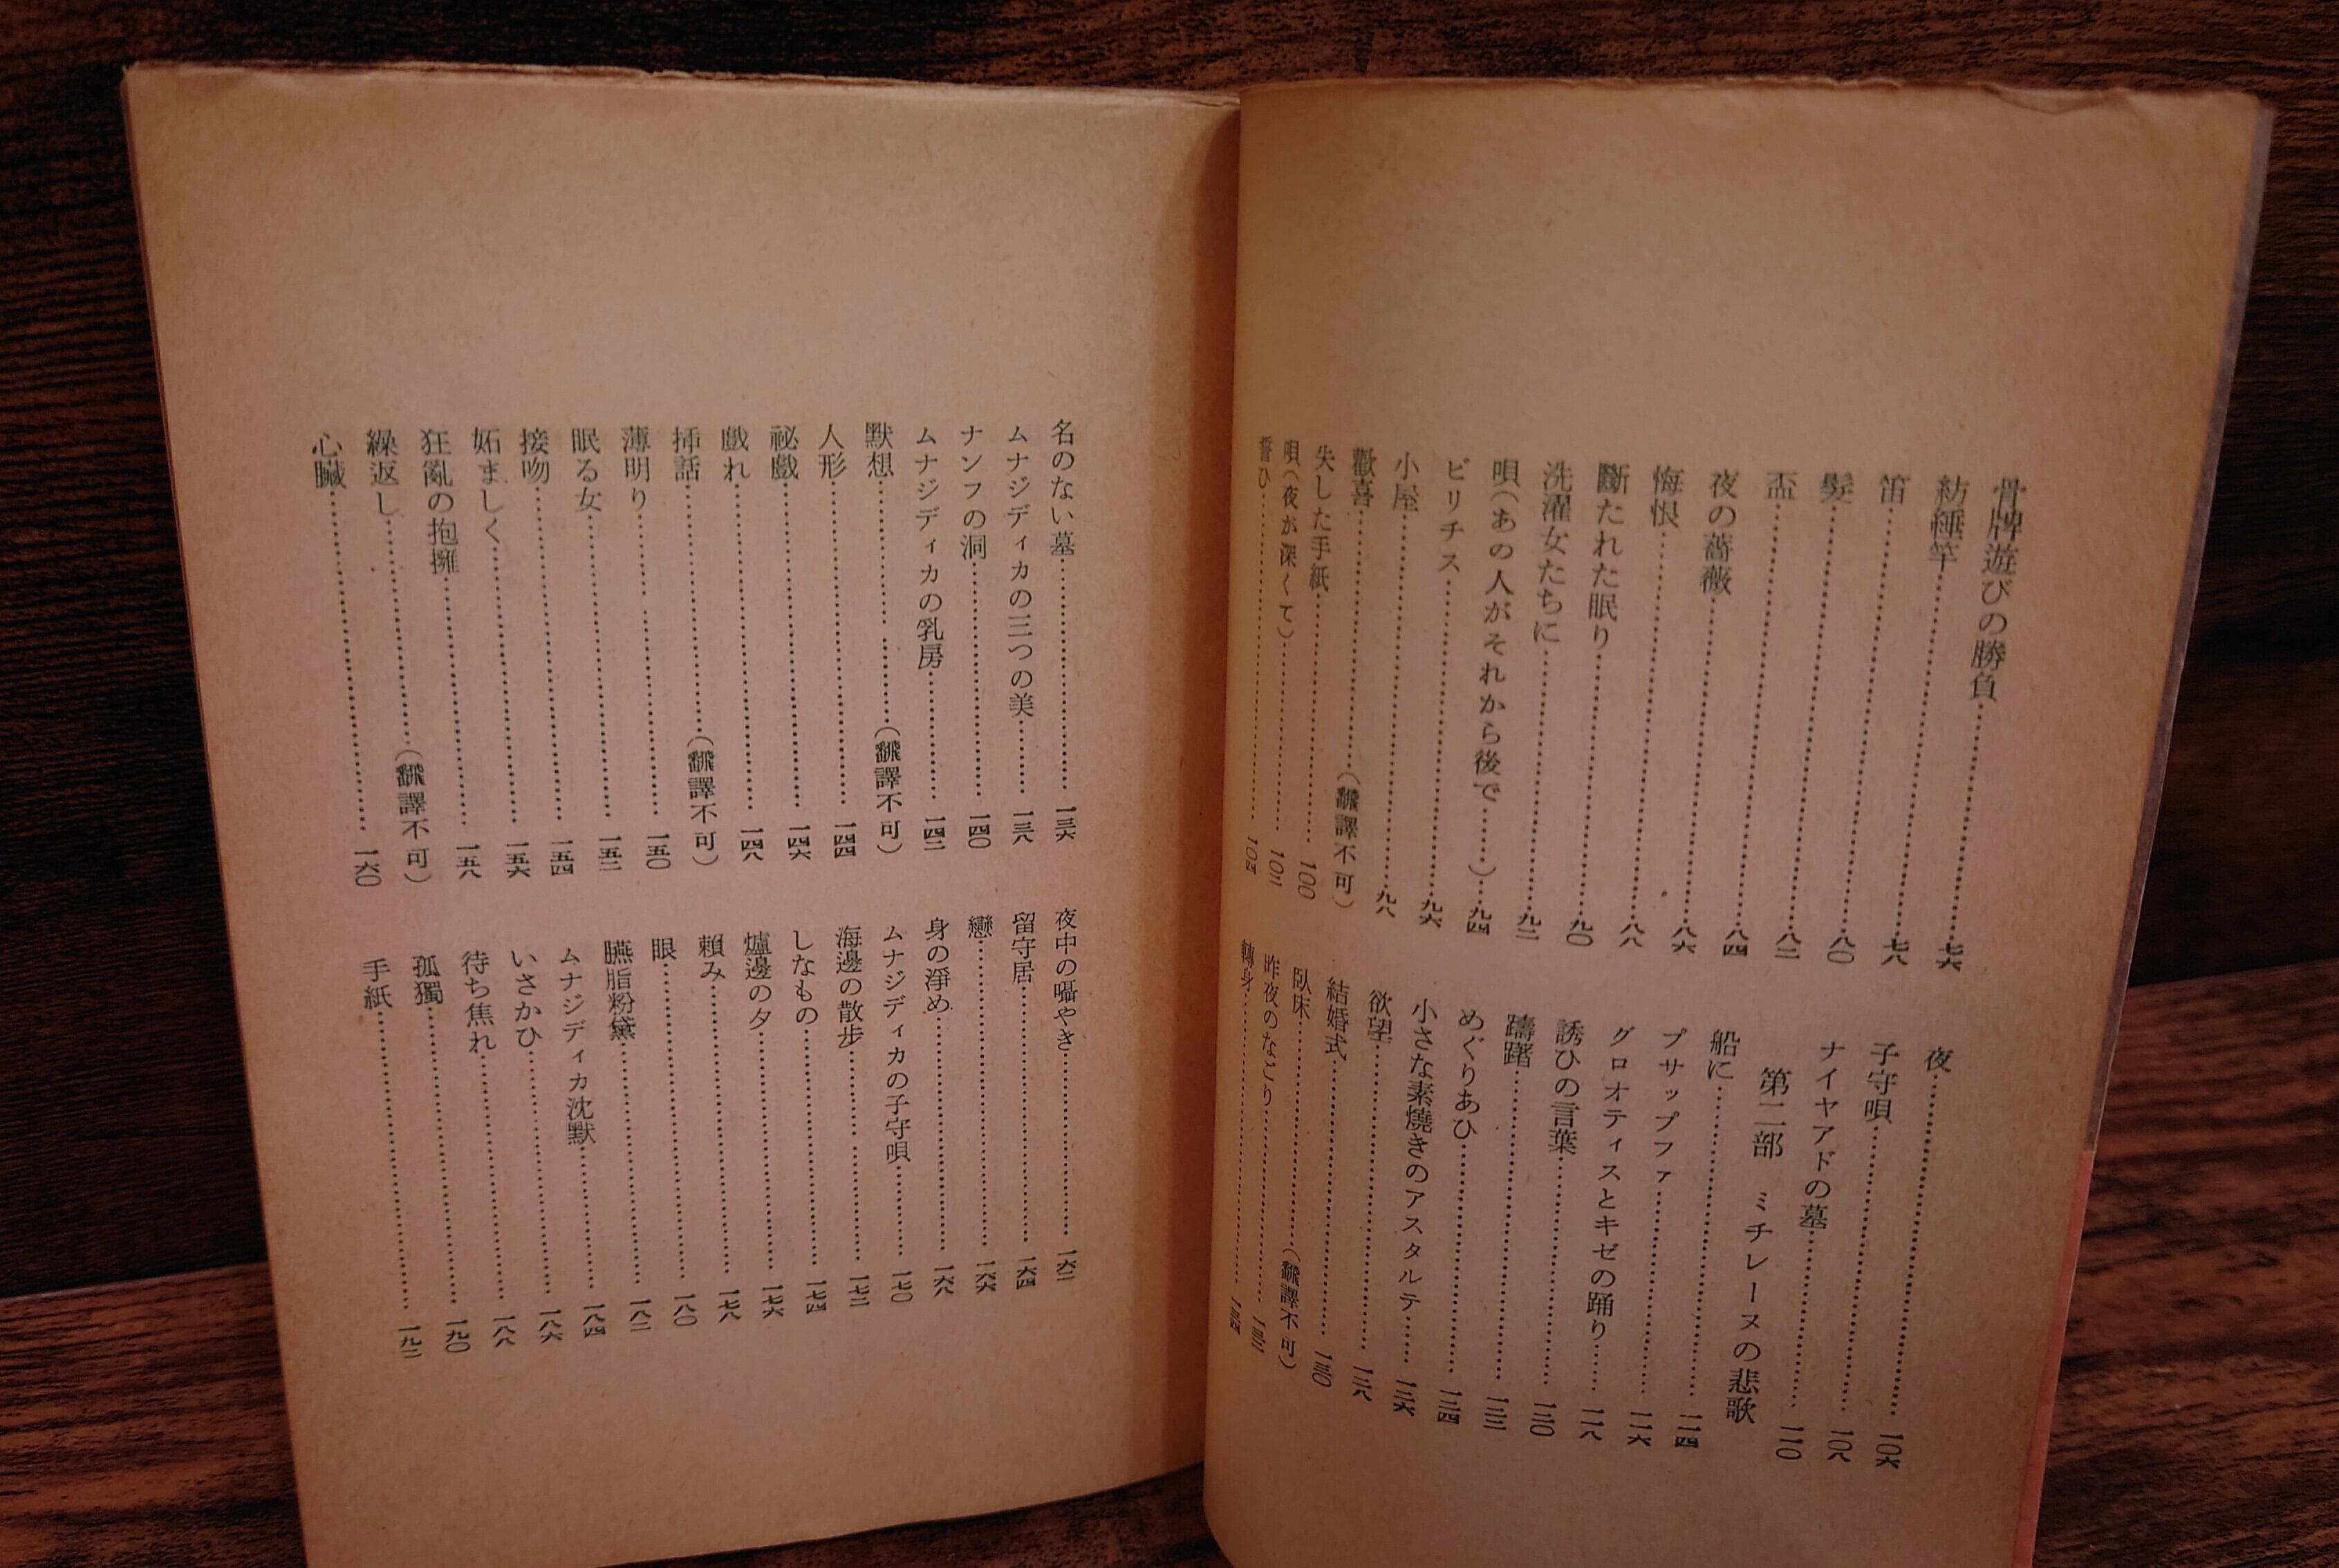 骨牌遊びの勝負……七六
紡錘竿……七八
笛……八〇
髮……八二
盃……八四
夜の薔薇……八六
悔恨……八八
斷たれた眠り……九〇
洗濯女たちに……九二
唄(あの人がそれから後で……)…九四
ビリチス……九六
小屋……九八
歡喜……(飜譯不可)
失した手紙……一〇〇
唄(夜が深くて)……一〇二
誓ひ……一〇四
夜……一〇六
子守唄……一〇八
ナイヤアドの墓……一一〇
第二部　ミチレーヌの悲歌
船に……一一四
プサッフア……一一六
グロオティスとキゼの踊り……一一八
誘ひの言葉……一二〇
躊躇……一二二
めぐりあひ……一二四
小さな素燒きのアスタルテ……一二六
欲望……一二八
結婚式……一三〇
臥床……(飜譯不可)
昨夜のなごり……一三二
轉身……一三四
名のない墓……一三六
ムナジディカの三つの美……一三八
ナンフの洞……一四〇
ムナジディカの乳房……一四二
默想……(飜譯不可)
人形……一四四
祕戲……一四六
戲れ……一四八
挿話……(飜譯不可)
薄明り……一五〇
眠る女……一五二
接吻……一五四
妬ましく……一五六
狂亂の抱擁……一五八
繰返し……(飜譯不可)
心臟……一六〇
夜中の囁やき……一六二
留守居……一六四
戀……一六六
身の淨め……一六八
ムナジディカの子守唄……一七〇
海邊の散步……一七二
しなもの……一七四
爐邊の夕……一七六
賴み……一七八
眼……一八〇
臙脂粉黛……一八二
ムナジディカ沈默……一八四
いさかひ……一八六
待ち焦れ……一八八
孤獨……一九〇
手紙……一九二